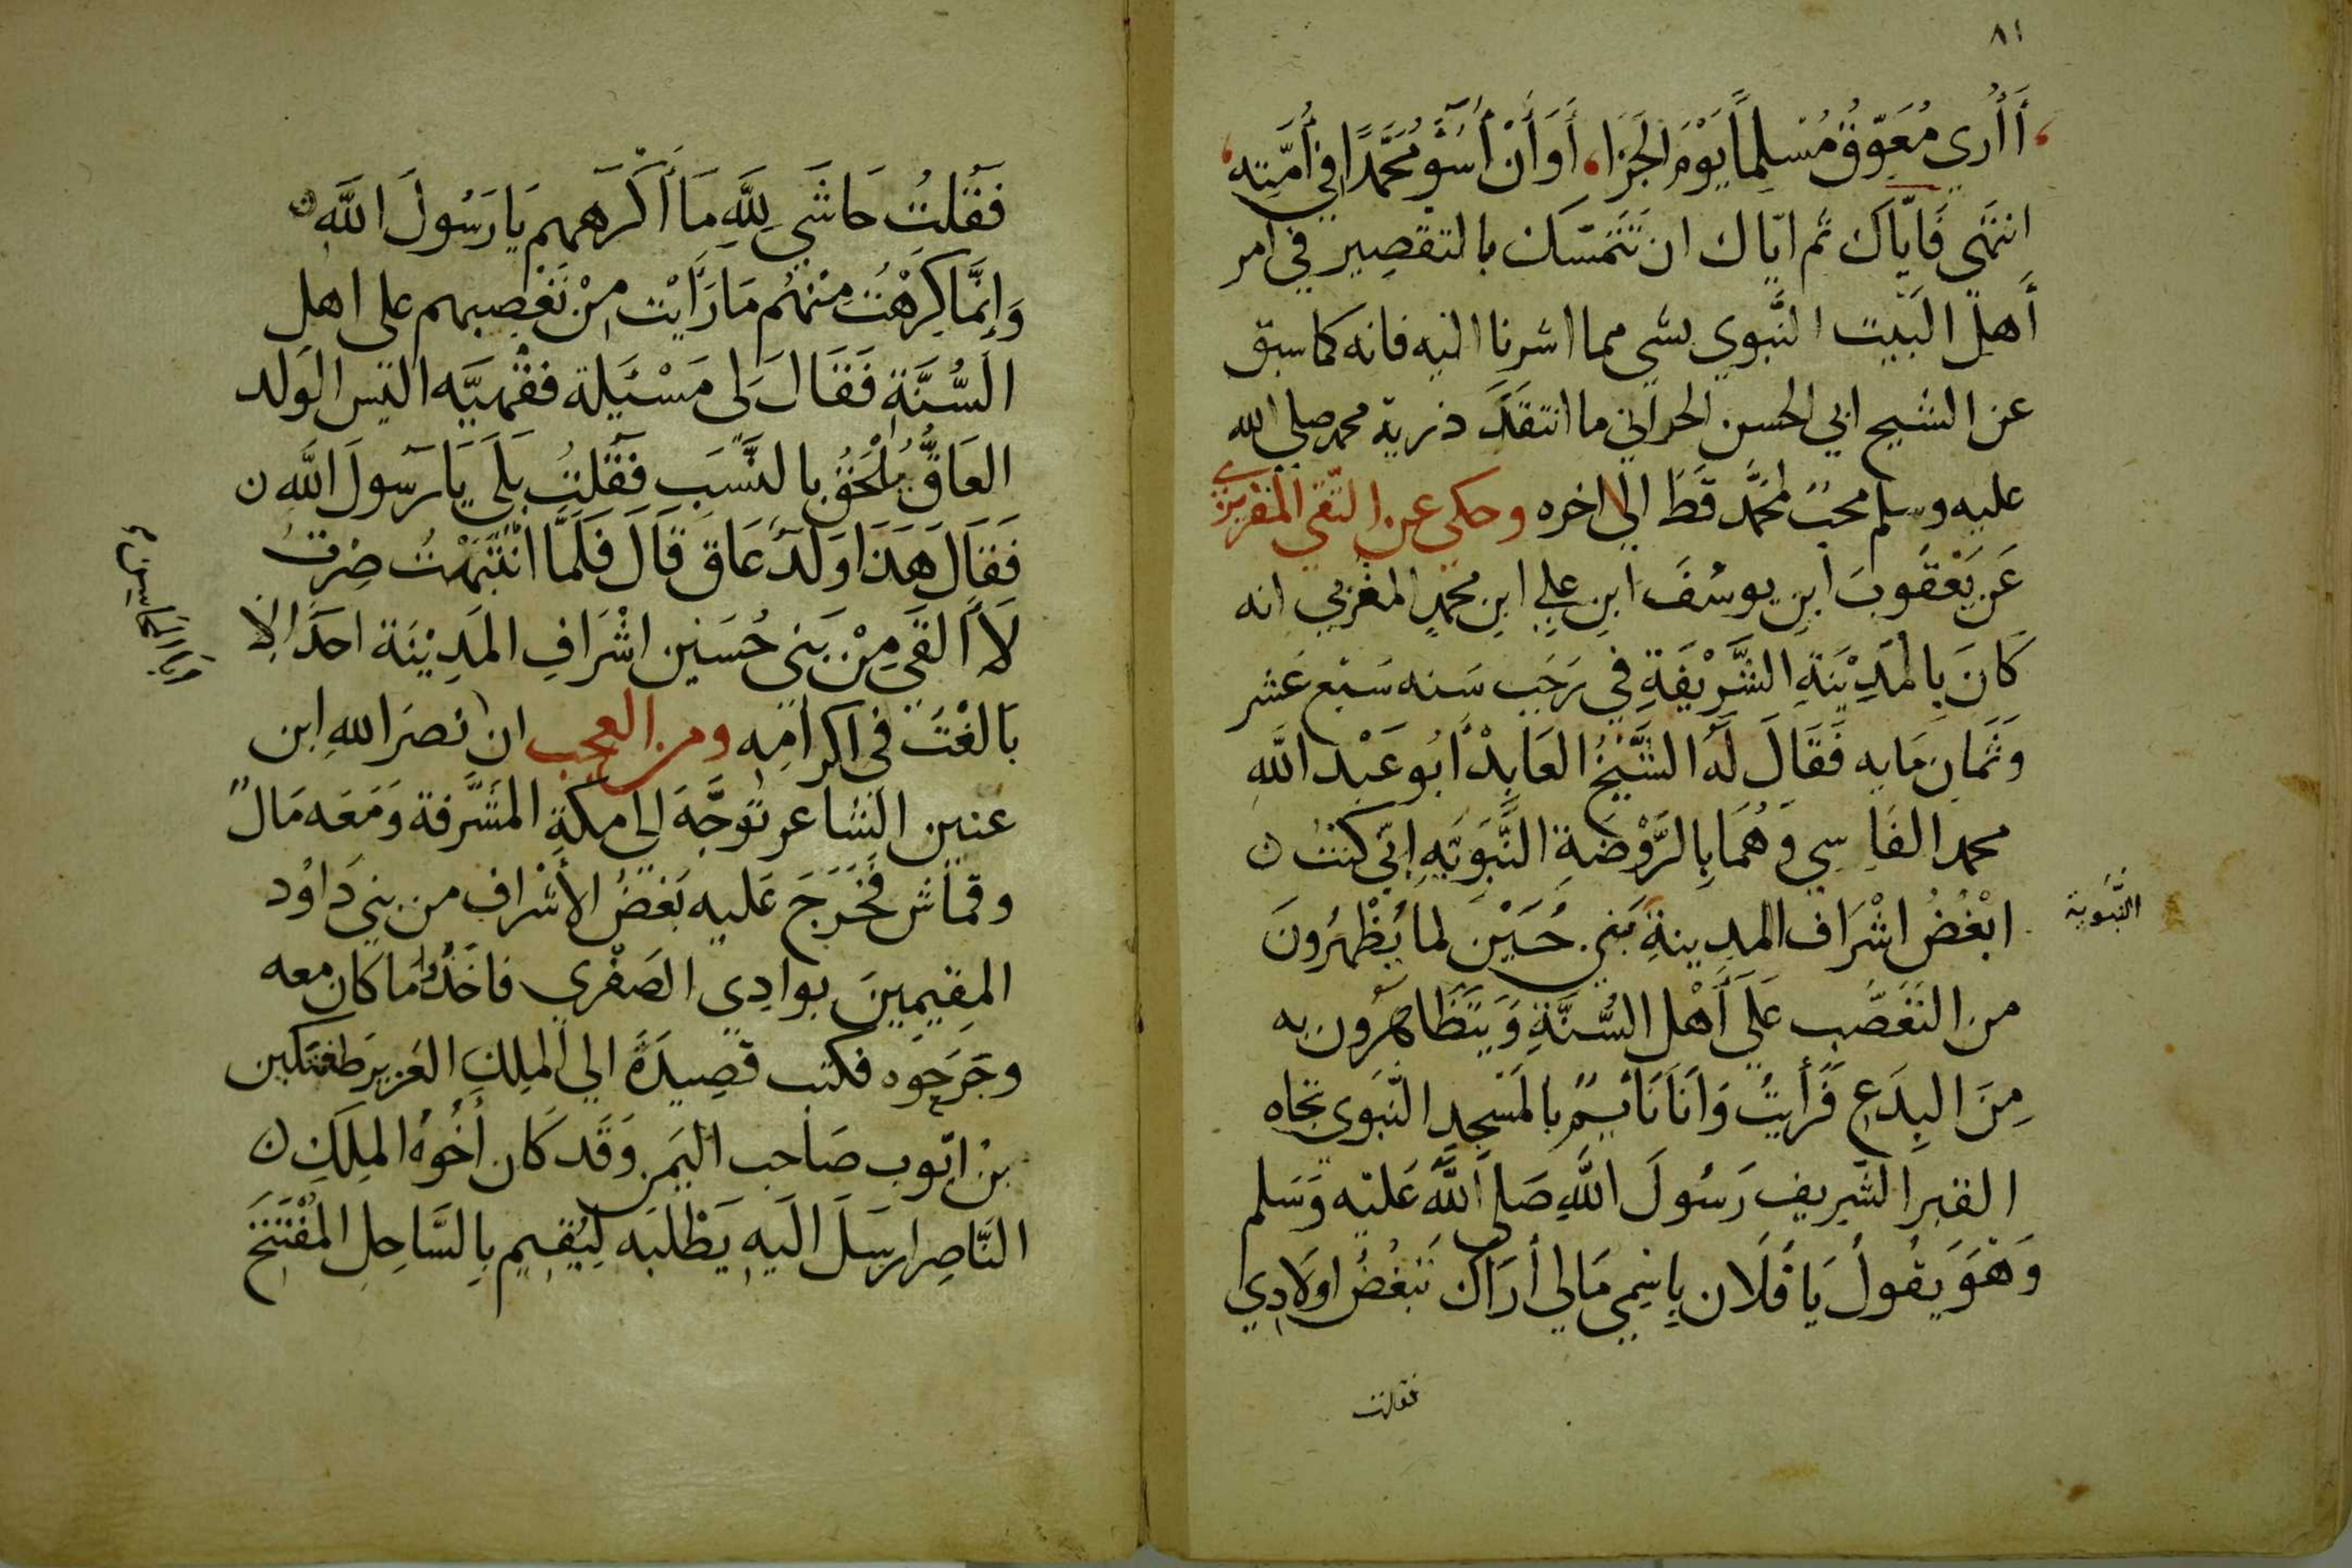 ٨١
أَأُرى مُعَوِّقَ مُسْلِمًا يَوْمَ الجَزَا، أَوَ أَنْ أَسُؤ مُحَمَّدًا فِي أُمَّتِه
انتهى فَايّاكَ ثم ايّاك ان تَتَمَسّك بالتقصِير في امر
أَهلِ البَيْت النَّبوي بشي مما اشرنا اليه فانه كما سبق
عن الشيح ابي الحسن الحراني ما انتقَدَ ذرية محمد صلى الله
عليه وسلم محبٌ لمحمَّد قَط الى اخره وحكى عن التّقي المقريزي
عَن يَعْقُوبَ ابنِ يوسُفَ ابنِ علي ابن محمدٍ المغربي انه
كَانَ بِالمَدِيْنَةِ الشَّرِيْفَةِ في رَجَب سَنه سَبْع عَشر
وَثَمَان مَايه فَقَالَ لَهُ الشَّيْخُ العَابِدْ أبُو عَبْد اللَّهِ
محمد الفَاسِي وَهُمَا بِالرَّوْضَةِ النَّبَوَيَّهِ اِنّي كنتُ ن
ابْغُضُ اشْرَاف المدِينةِ بَني حُسَيْنَ لما يُظْهِرُونَ
النَّبُوية
من التَعَصُّب عَلَى أَهْل السُّنَّةِ وَيَتَظَاهَرُون به
مِنَ البِدَعِ فَرأَيتُ وَأنَا نَايِمٌ بالمَسْجِدِ النَّبوي تجاه
القبر الشَرِيف رَسُولَ اللَّهِ صَلى اللَّهُ عَليْه وَسَلم
وَهْوَ يقُولُ يَا فُلَان بِاسْمِي مَالي أرَاك تَبْغُضُ اولَادِي
فقلت
فَقُلتُ حَاشَى لِلَّهِ مَا أكْرَهمهم يَا رَسُولَ اللَّهِ ن
وَإنَّما كَرِهْتُ مِنْهُم مَا رَأيْت مِنْ تَعَصبهم على اهل
السُّنَّةِ فَقَالَ لى مَسْئَيلة فقْهيَّه اليْس الوَلد
العَاقُّ يُلْحَقُ بالنَّسَب فَقُلتُ بَلَى يَا رَسُولَ اللَّه ن
فَقَالَ هَذَا وَلَدٌ عَاق قَالَ فَلَمَّا انْتَبَهْتُ صِرْتُ
لَا ألقَى مِنْ بَنى حُسَين اشْرَافِ المَدِيْنَة احدًا إلا
بَالغْتُ في اكرامِه ومن العجب ان نصرَ الله ابن
عنين الشاعر تَوَجَّهَ الى مكةِ المشَّرفة وَمَعَه مَالٌ
وقمَاش فَخَرَجَ عَليه بَعْضُ الأشْراف من بني دَاوُد
المقيمِينَ بوادِي الصَفْرِي فاخَذُوا ما كان معه
وجَرَحوه فكتب قصِيدَةً الى الملِك العَزيز طغتكين
بنْ ايّوب صَاحِب اليَمن وَقَد كَان أخُوُهُ الملِكِ ن
النَّاصِر ارسَلَ اليه يَطْلبَه لِيُقيم بِالسَّاحِلِ المُفْتَتَح